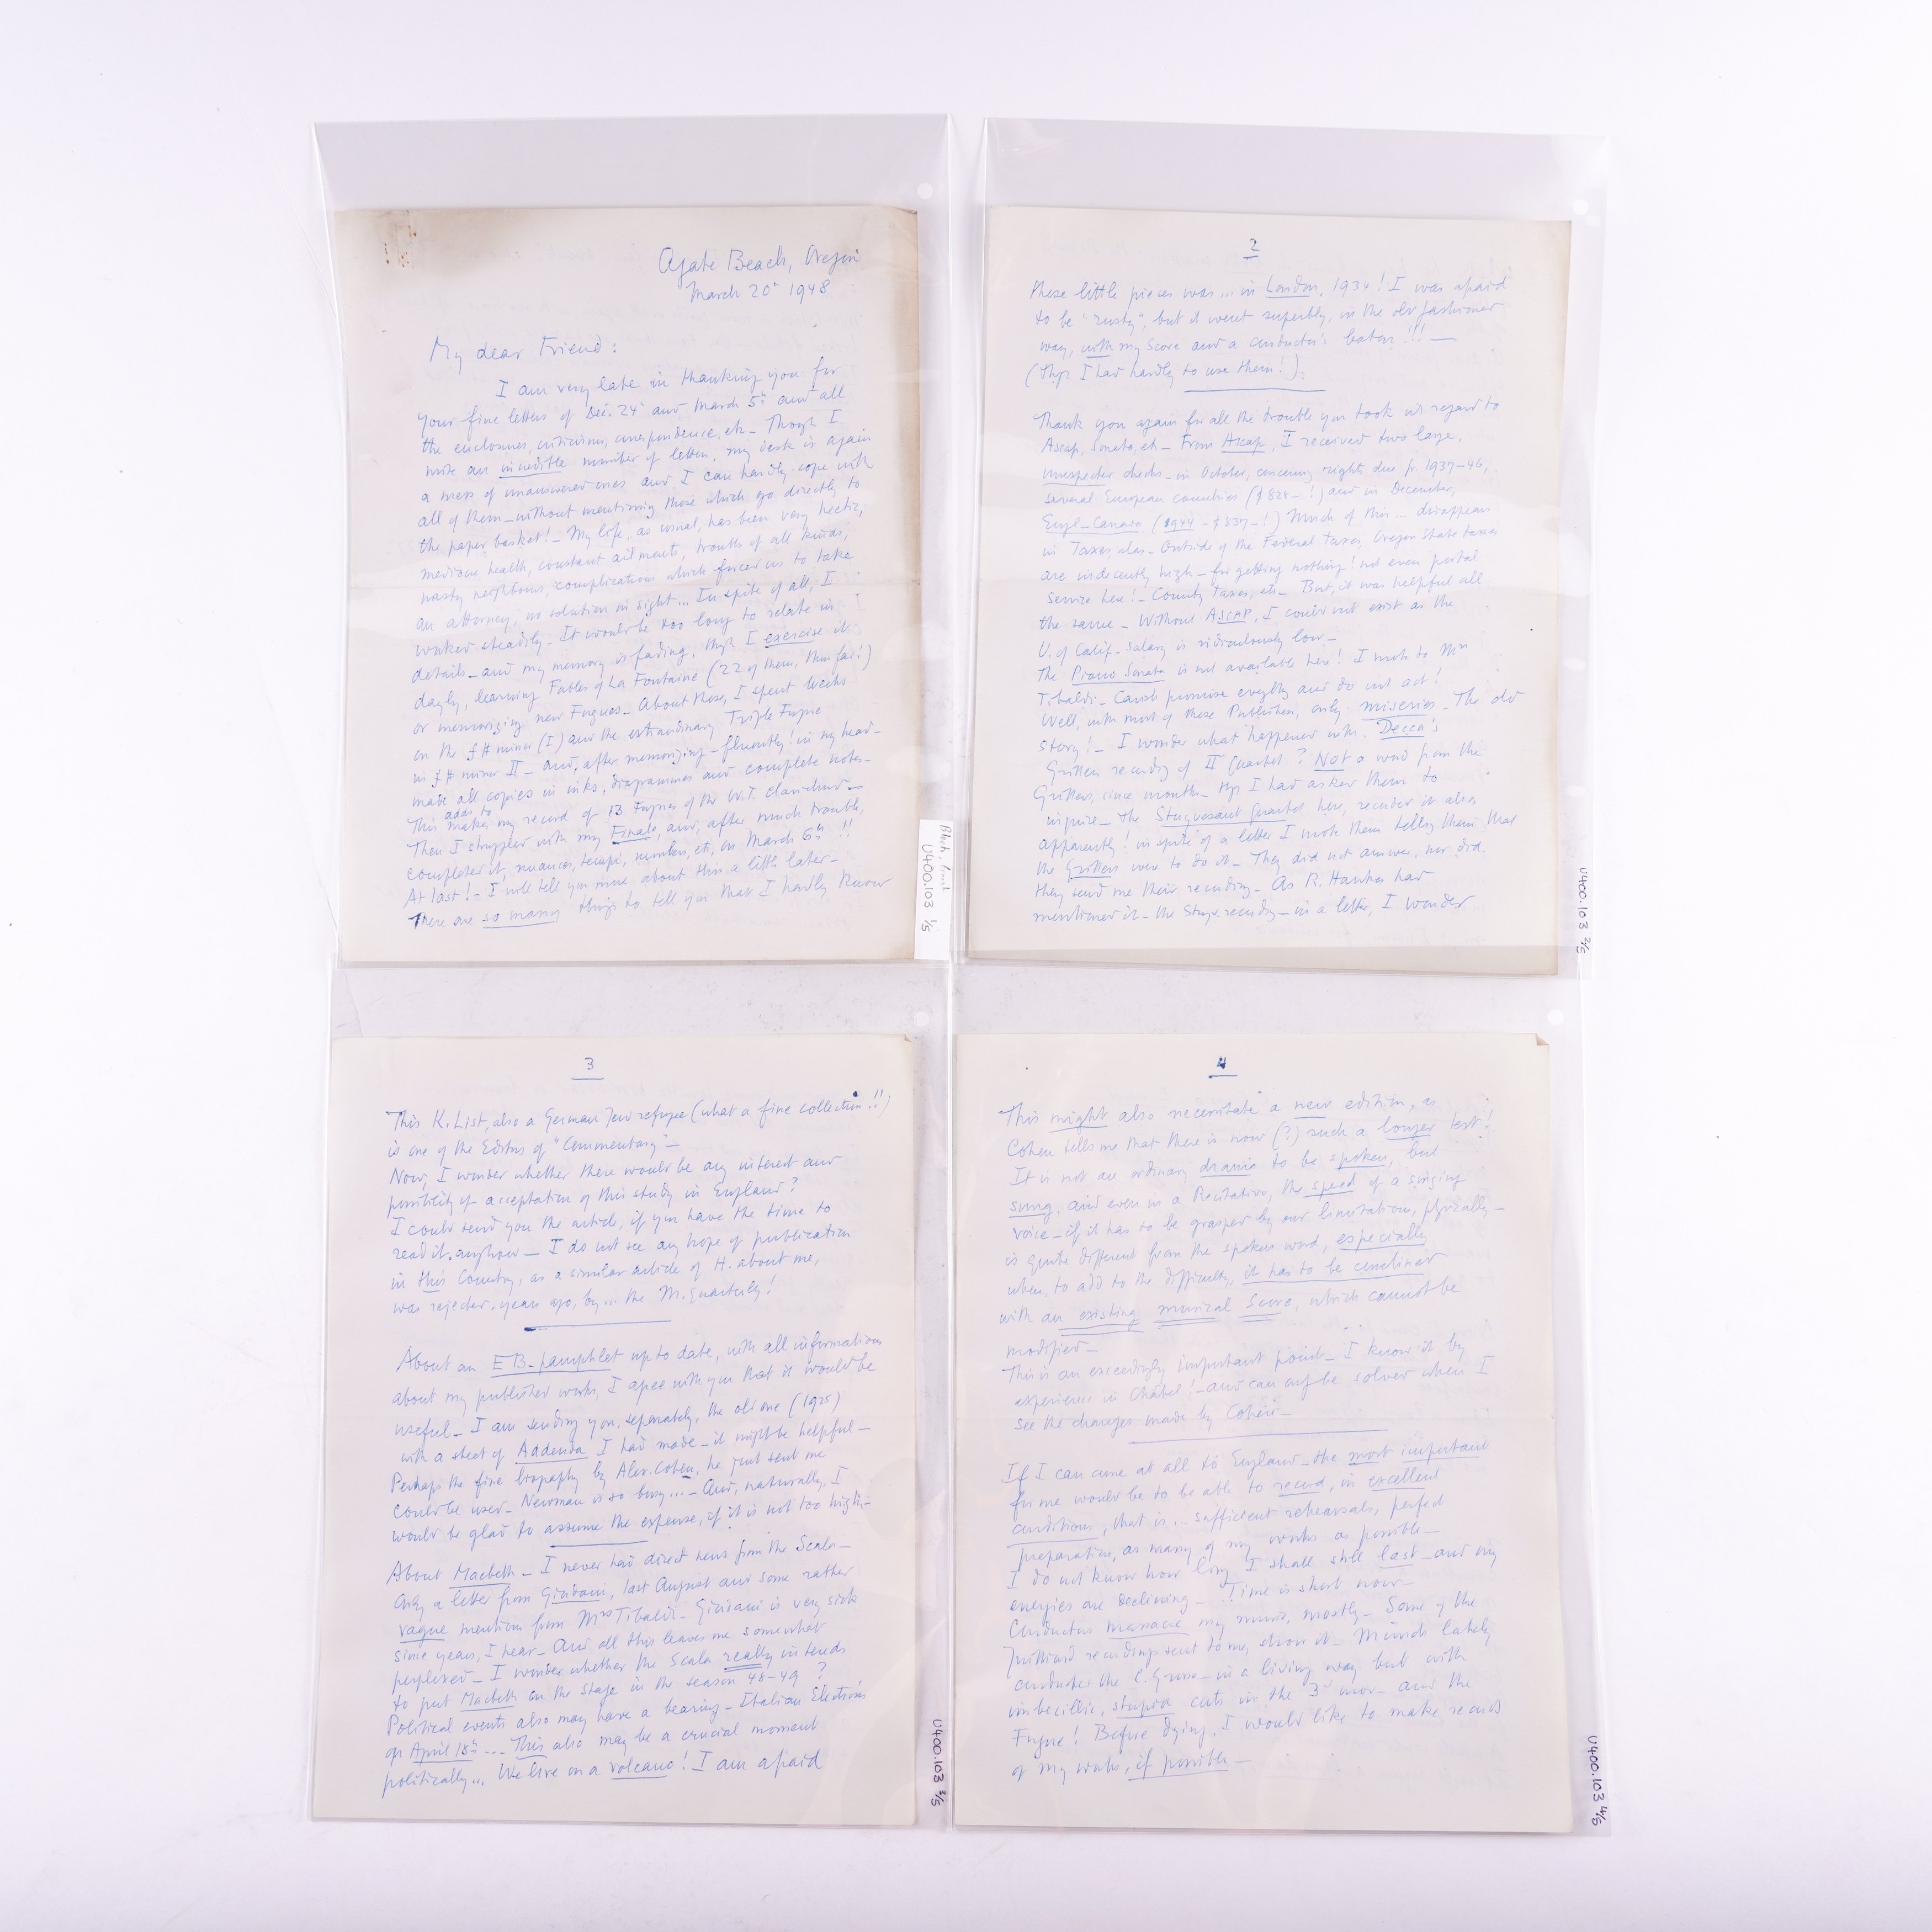 Agate Beach, Oregon
March 20th 1948
My dear Friend:
I am very late in thanking you for
your fine letters of Dec. 24th and March 5th and all
the enclosures, criticisms, correspondence, etc — Though I
write an incredible number of letters, my desk is again
a mess of unanswered ones and I can hardly cope with
all of them — without mentioning those which go directly to
the paper basket! — My life, as usual, has been very hectic,
mediocre health, constant ailments, troubles of all kinds,
nasty neighbours, complications which forced us to take
an attorney, no solution in sight... In spite of all, I
worked steadily — It would be too long to relate in
details — and my memory is fading, tho I exercise it
dayly, learning Fables of La Fontaine (22 of them, thus far!)
or memorizing new Fugues — About these, I spent weeks
on the f# minor (I) and the extraordinary Triple Fugue
in f# minor II — and, after memorizing — fluently! in my head —
made all copies in inks, diagrammes and complete notes —
This adds to my record of 13 Fugues of the W.T. Clavichord —
Then I struggled with my Finale, and, after much trouble,
completed it, nuances, tempi, numbers, etc, on March 6th !!
At last! — I will tell you more about this a little later —
There are so many things to tell you that I hardly know
Bloch, Ernest
U400.103 1/5
2
these little pieces was... in London, 1934! I was afraid
to be "rusty", but it went superbly, in the old fashioned
way, with my score and a conductor's baton!!! —
(tho I had hardly to use them!).
Thank you again for all the trouble you took in regard to
Ascap, Sonata, etc — From Ascap, I received two large,
unexpected checks — in October, concerning rights due fr. 1937–46,
several European countries ($828 — !) and in December,
Engl — Canada (1944 — $837 — !) Much of this... disappears
in Taxes, alas — Outside of the Federal Taxes, Oregon State taxes
are indecently high — for getting nothing! not even postal
service here! — County Taxes, etc — But, it was helpful all
the same — Without ASCAP, I could not exist as the
U. of Calif — salary is ridiculously low —
The Piano Sonata is not available here! I wrote to Mrs
Tibaldi — Carish promise everything and do not act!
Well, with most of these Publishers, only miseries — The old
story! — I wonder what happened with Decca's
Grillers recording of II Quartet? Not a word from the
Grillers, since months — tho I had asked them to
inquire — The Stuyvesant Quartet here, recorded it also
apparently! in spite of a letter I wrote them telling them that
the Grillers were to do it — They did not answer, nor did
they send me their recording — As R. Hawkes had
mentioned it — the Stuyv. recording — in a letter, I wonder
U400.103 2/5
3
This K. List, also a German Jew refugee (what a fine collection!!)
is one of the Editors of "Commentary" —
Now, I wonder whether there would be any interest and
possibility of acceptation of this study in England?
I could send you the article, if you have the time to
read it, anyhow — I do not see any hope of publication
in this Country, as a similar article of H. about me,
was rejected, years ago, by... the M. Quarterly!
About an EB — pamphlet up to date, with all informations
about my published works, I agree with you that it would be
useful — I am sending you, separately, the old one (1925)
with a sheet of Addenda I had made — it might be helpful —
Perhaps the fine biography by Alex. Cohen, he just sent me
could be used — Newman is so busy... — And, naturally, I
would be glad to assume the expense, if it is not too high —
About Macbeth — I never had direct news from the Scala —
Only a letter from Ghiringhelli, last August and some rather
vague mentions from Mrs Tibaldi — is very sick
since years, I hear — And all this leaves me somewhat
perplexed — I wonder whether the Scala really intends
to put Macbeth on the stage in the season 48–49?
Political events also may have a bearing — Italian Elections
on April 18th... This also may be a crucial moment
politically... We live on a volcano! I am afraid
U400.103 3/5
4
This might also necessitate a new edition, as
Cohen tells me that there is now (?) such a longer text!
It is not an ordinary drama to be spoken, but
sung, and even in a Recitative, the speed of a singing
voice — if it has to be grasped by our limitation, physically —
is quite different from the spoken word, especially
when, to add to the difficulty, it has to be combined
with an existing musical score, which cannot be
modified —
This is an exceedingly important point — I know it by
experience in Châtel! — and can only be solved when I
see the changes made by Cohen —
If I can come at all to England — the most important
for me would be to be able to record, in excellent
conditions, that is... sufficient rehearsals, perfect
preparation, as many of my works as possible —
I do not know how long I shall still last — and my
energies are declining — Time is short now —
Conductors massacre my music, mostly — Some of the
Juilliard recordings sent to me, show it — Münch lately
conducted the C. Grosso — in a living way but with
imbecillic, stupid cuts in the 3d mov — and the
Fugue! Before dying, I would like to make records
of my works, if possible —
U400.103 4/5